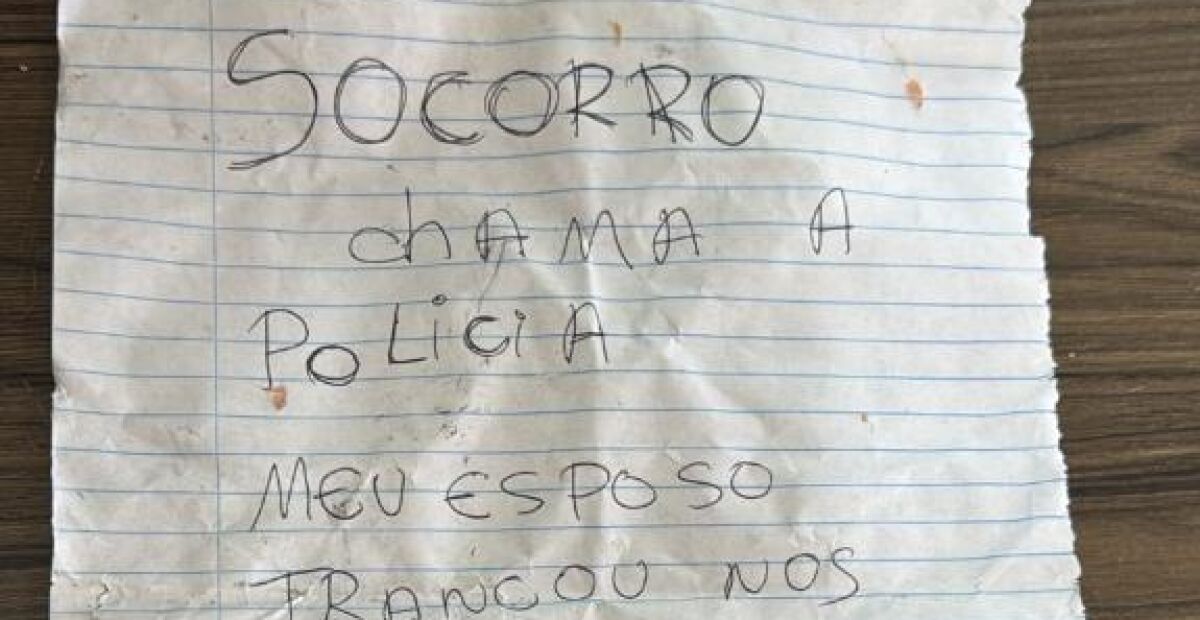 SOCORRO
chAMA A
POLiCiA
MEU ESPOSO
TRANCOU NOS